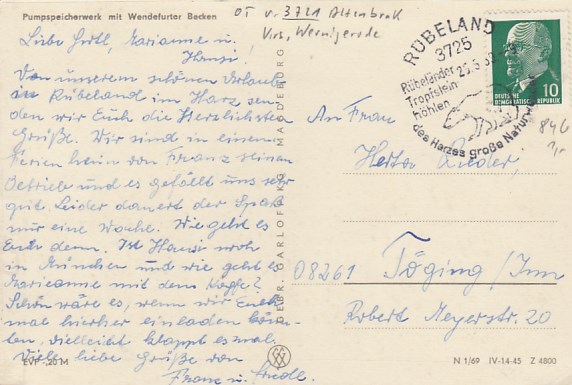 Pumpspeicherwerk mit Wendefurter Becken
OT v. 3721 Altenbrak
Krs. Wernigerode
Liebe Marianne u.
Hansi!
Von unserem schönen Urlaub
in Rübeland im Harz sen-
den wir Euch die herzlichsten
Grüße. Wir sind in einem
Ferienheim von Franz seinem
Betrieb und es gefällt uns sehr
gut. Leider dauert der Spaß
nur eine Woche. Wie geht es
Euch denn. Ist Hansi noch
in München und wie geht es
Marianne mit dem
Schön wäre es, wenn wir Euch
mal hierher einladen könn-
ten, vielleicht klappt es mal.
Viele liebe Grüße von
Franz u.
EVP -,20 M
GEBR. GARLOFF KG MAGDEBURG
RÜBELAND
3725
Rübeländer
Tropfstein
höhlen
des Harzes große Natur
DEUTSCHE
DEMOKRATISCHE REPUBLIK
10
846
1,-
An Frau
08261 Töging/Inn
Robert Meyerstr. 20
N 1/69 IV-14-45 Z 4800